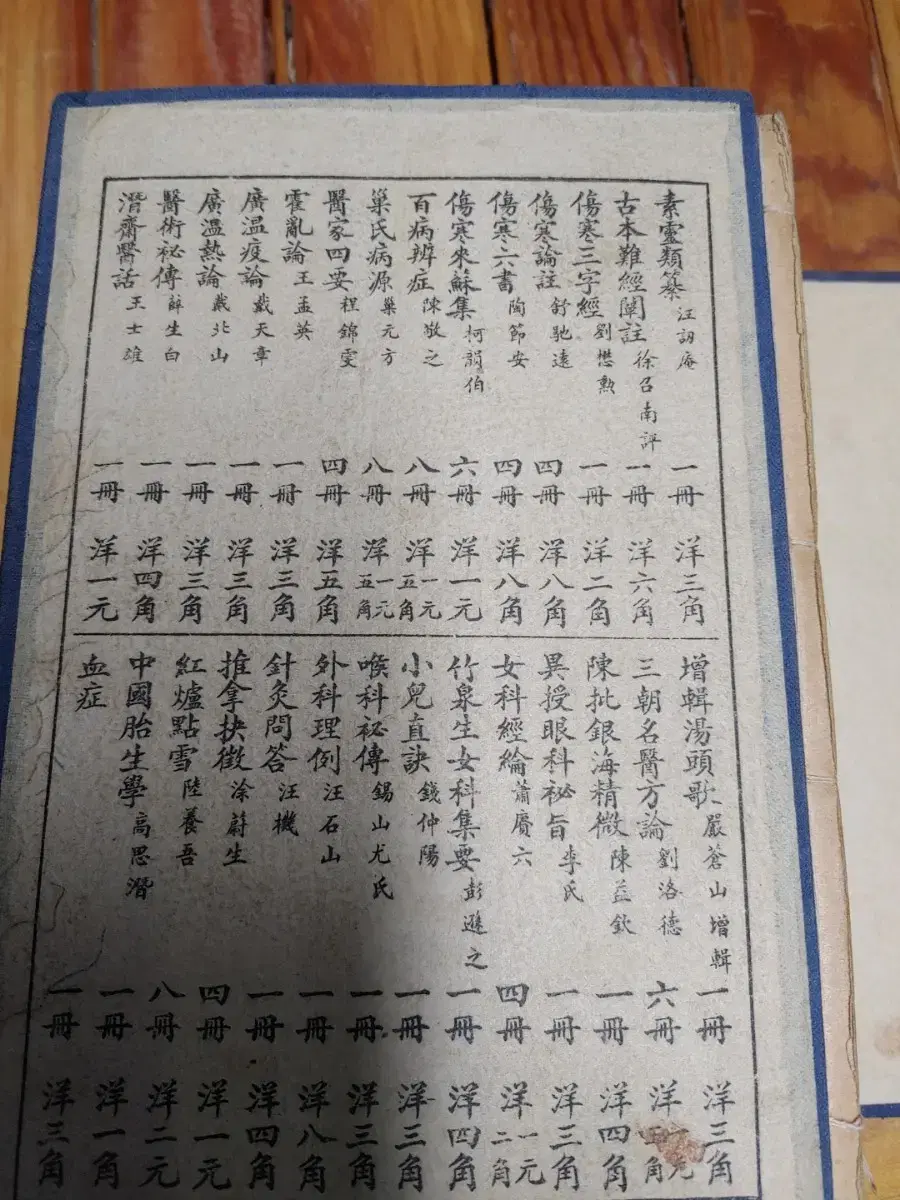 素靈類纂 汪訒庵 一冊 洋三角
古本難經闡註 徐召南評 一冊 洋六角
傷寒三字經 劉懋勲 一冊 洋二角
傷寒論註 舒馳遠 四冊 洋八角
傷寒六書 陶節安 四冊 洋八角
傷寒來蘇集 柯韻伯 六冊 洋一元
百病辨症 陳敬之 八冊 洋一元五角
巢氏病源 巢元方 八冊 洋一元五角
醫家四要 程錦雯 四冊 洋五角
霍亂論 王孟英 一冊 洋三角
廣溫疫論 戴天章 一冊 洋三角
廣溫熱論 戴北山 一冊 洋三角
醫術祕傳 薛生白 一冊 洋四角
潛齋醫話 王士雄 一冊 洋一元
增輯湯頭歌 嚴蒼山增輯 一冊 洋三角
三朝名醫方論 劉洛德 六冊 洋元角
陳批銀海精微 陳益欽 一冊 洋四角
異授眼科祕旨 李氏 一冊 洋三角
女科經綸 蕭賡六 四冊 洋一元二角
竹泉生女科集要 彭遜之 一冊 洋四角
小兒直訣 錢仲陽 一冊 洋三角
喉科祕傳 錫山尤氏 一冊 洋三角
外科理例 汪石山 一冊 洋八角
針灸問答 汪機 一冊 洋四角
推拿抉微 涂蔚生 四冊 洋一元
紅爐點雪 陸養吾 八冊 洋二元
中國胎生學 高思潛 一冊 洋一角
血症 一冊 洋三角